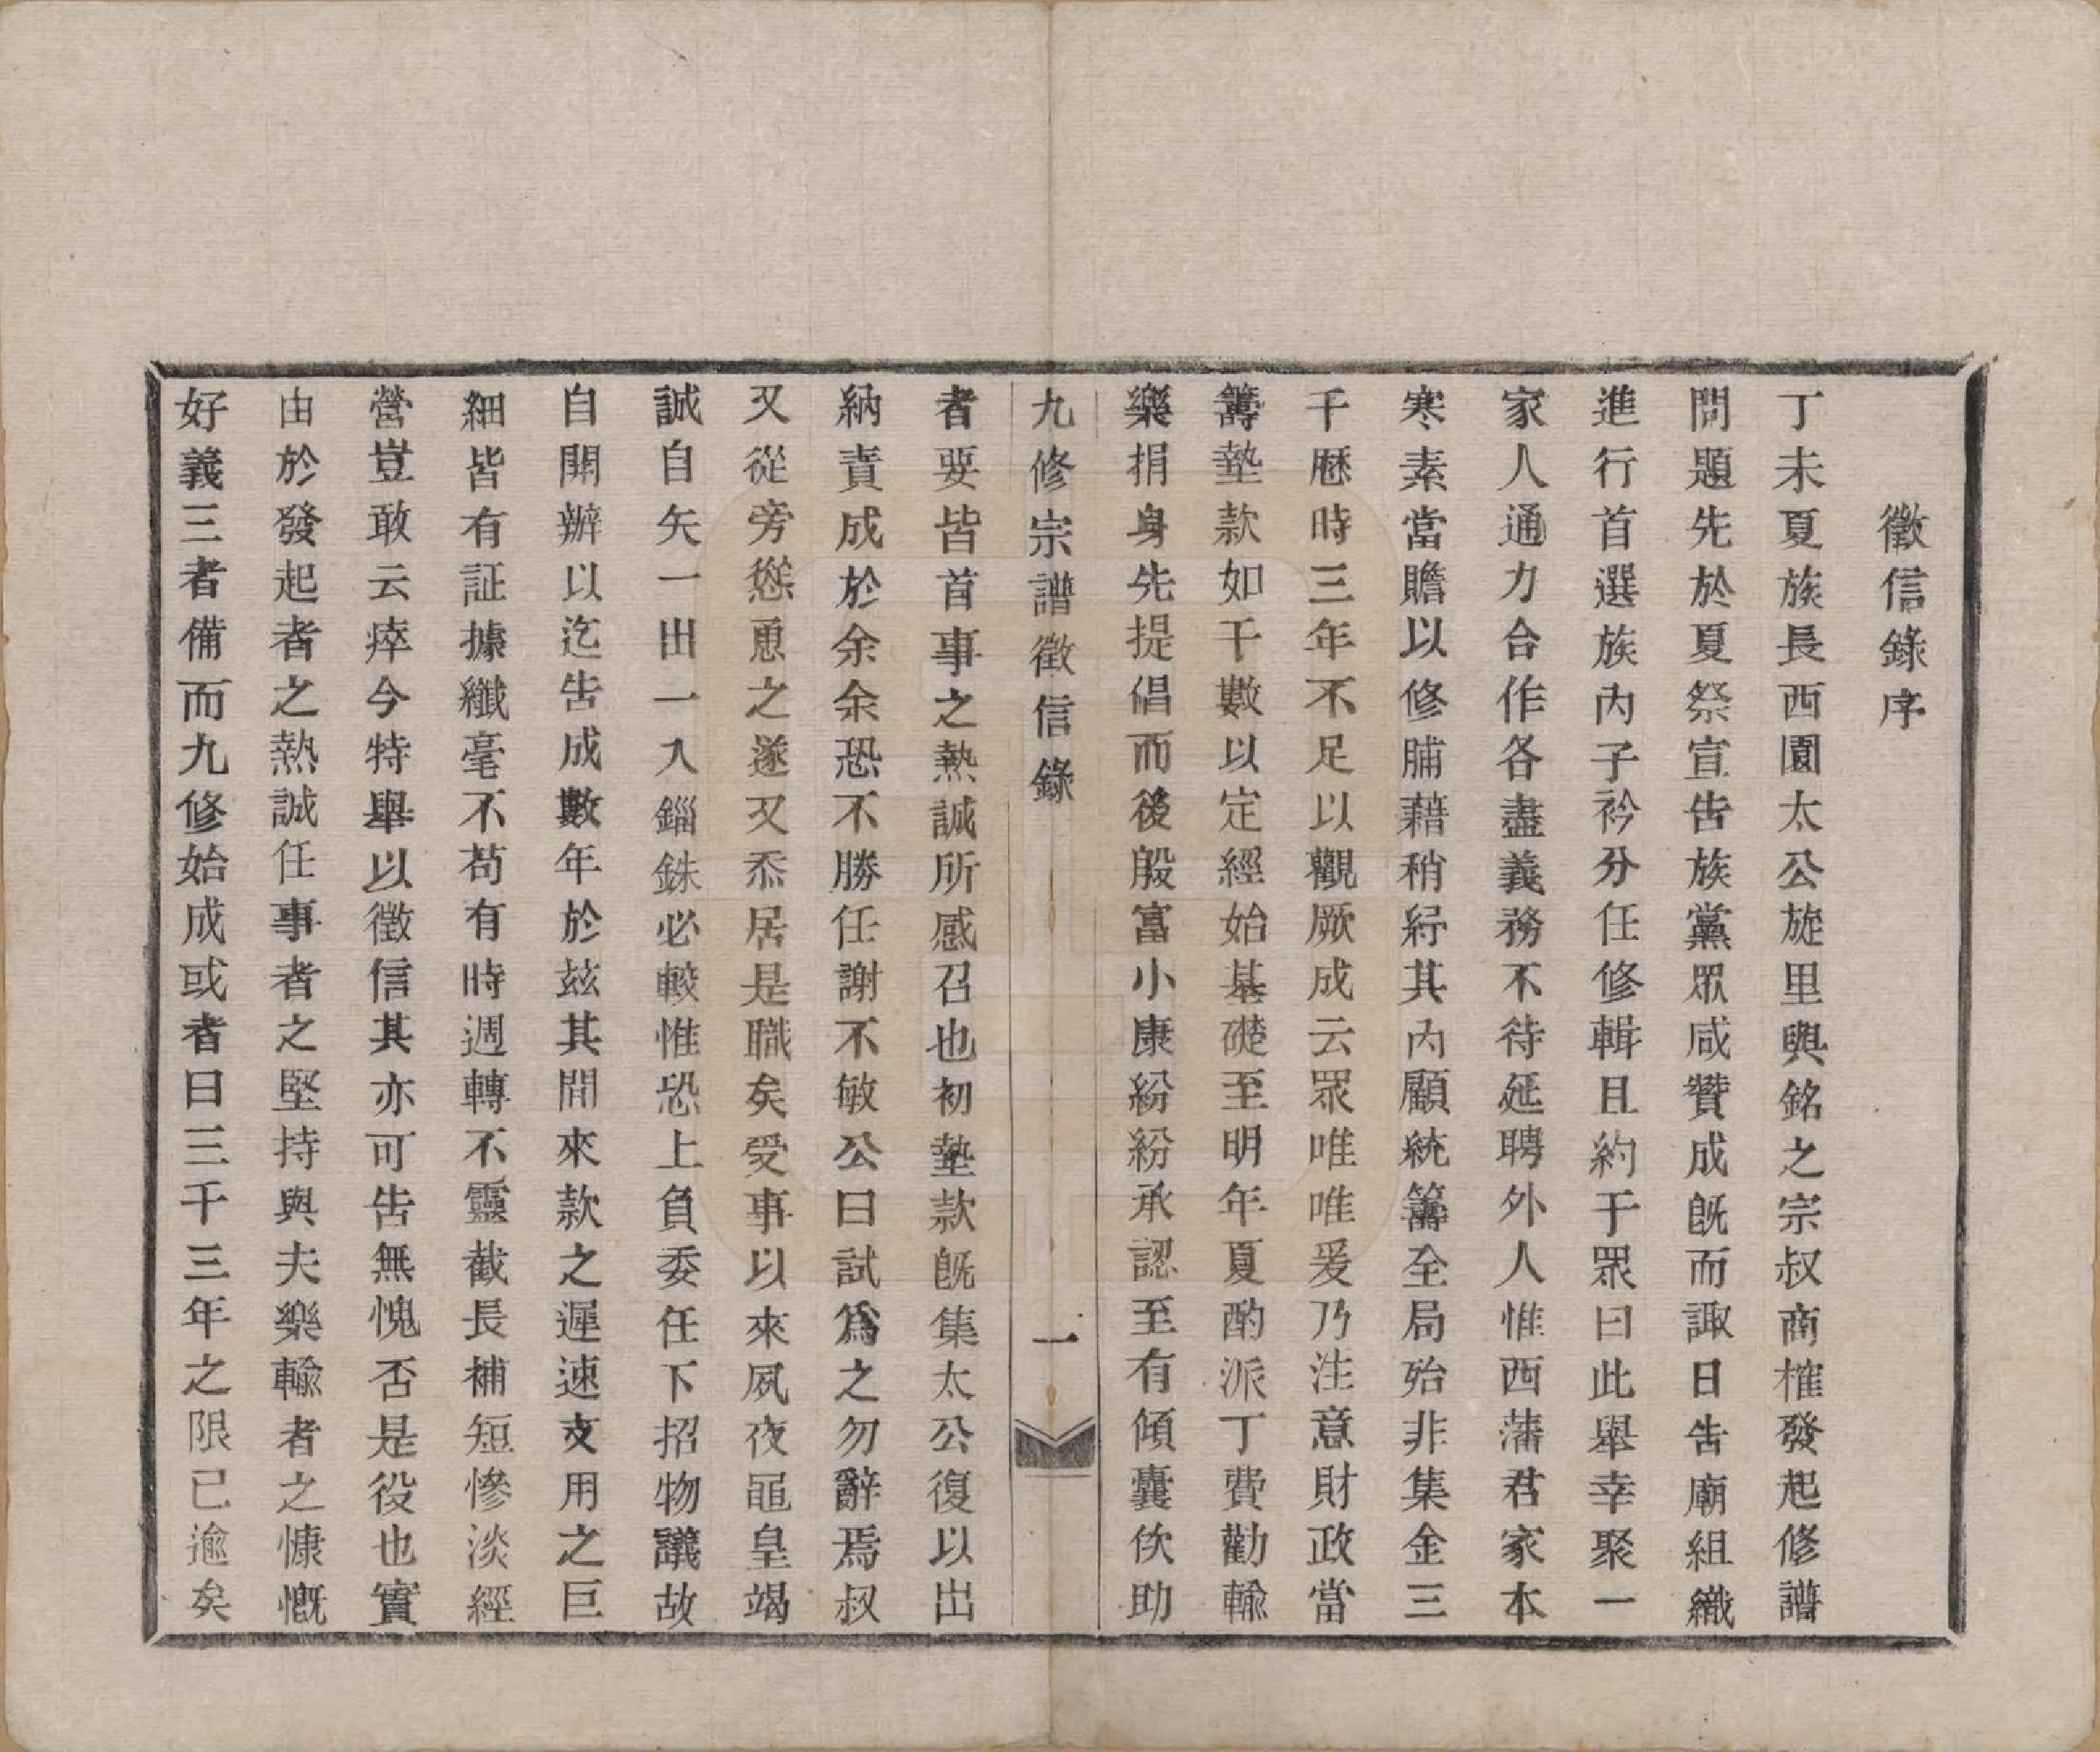 徵信錄序
丁未夏族長西園太公旋里與銘之宗叔商榷發起修譜
問題先於夏祭宣告族黨眾咸贊成既而諏日告廟組織
進行首選族內子衿分任修輯且約于眾曰此舉幸聚一
家人通力合作各盡義務不待延聘外人惟西藩君家本
寒素當贍以修脯藉稍紓其內顧統籌全局殆非集金三
千歷時三年不足以觀厥成云眾唯唯爰乃注意財政當
籌墊款如干數以定經始基礎至明年夏酌派丁費勸輸
樂捐身先提倡而後殷富小康紛紛承認至有傾囊佽助
九修宗譜徵信錄 一
者要皆首事之熱誠所感召也初墊款既集太公復以出
納責成於余余恐不勝任謝不敏公曰試為之勿辭焉叔
又從旁慫恿之遂又忝居是職矣受事以來夙夜黽皇竭
誠自矢一出一入錙銖必較惟恐上負委任下招物議故
自開辦以迄告成數年於玆其間來款之遲速支用之巨
細皆有証據纖毫不苟有時週轉不靈截長補短慘淡經
營豈敢云瘁今特舉以徵信其亦可告無愧否是役也實
由於發起者之熱誠任事者之堅持與夫樂輸者之慷慨
好義三者備而九修始成或者曰三千三年之限已逾矣